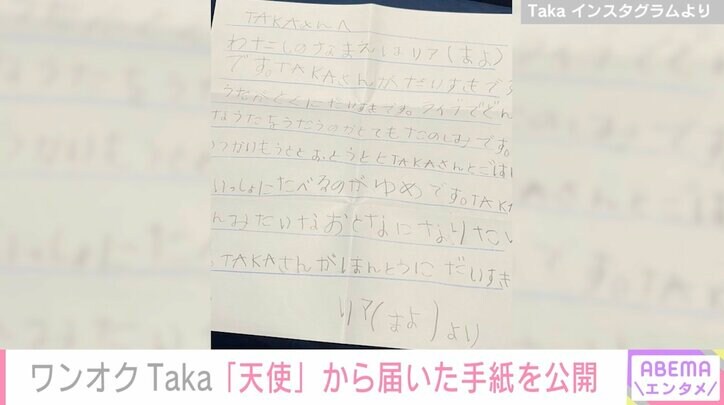 Taka インスタグラムより
TAKAさんへ
わたしのなまえはリア(まよ)
です。TAKAさんがだいすきです
うたがとくにだいすきです。ライブでどん
なうたをうたうのかとてもたのしみです。
いつかいもうととおとうととTAKAさんとごはん
いっしょにたべるのがゆめです。TAKA
んみたいなおとなになりたい
TAKAさんがほんとうにだいすき
リア(まよ)より
ワンオクTaka「天使」から届いた手紙を公開
ABEMA
エンタメ